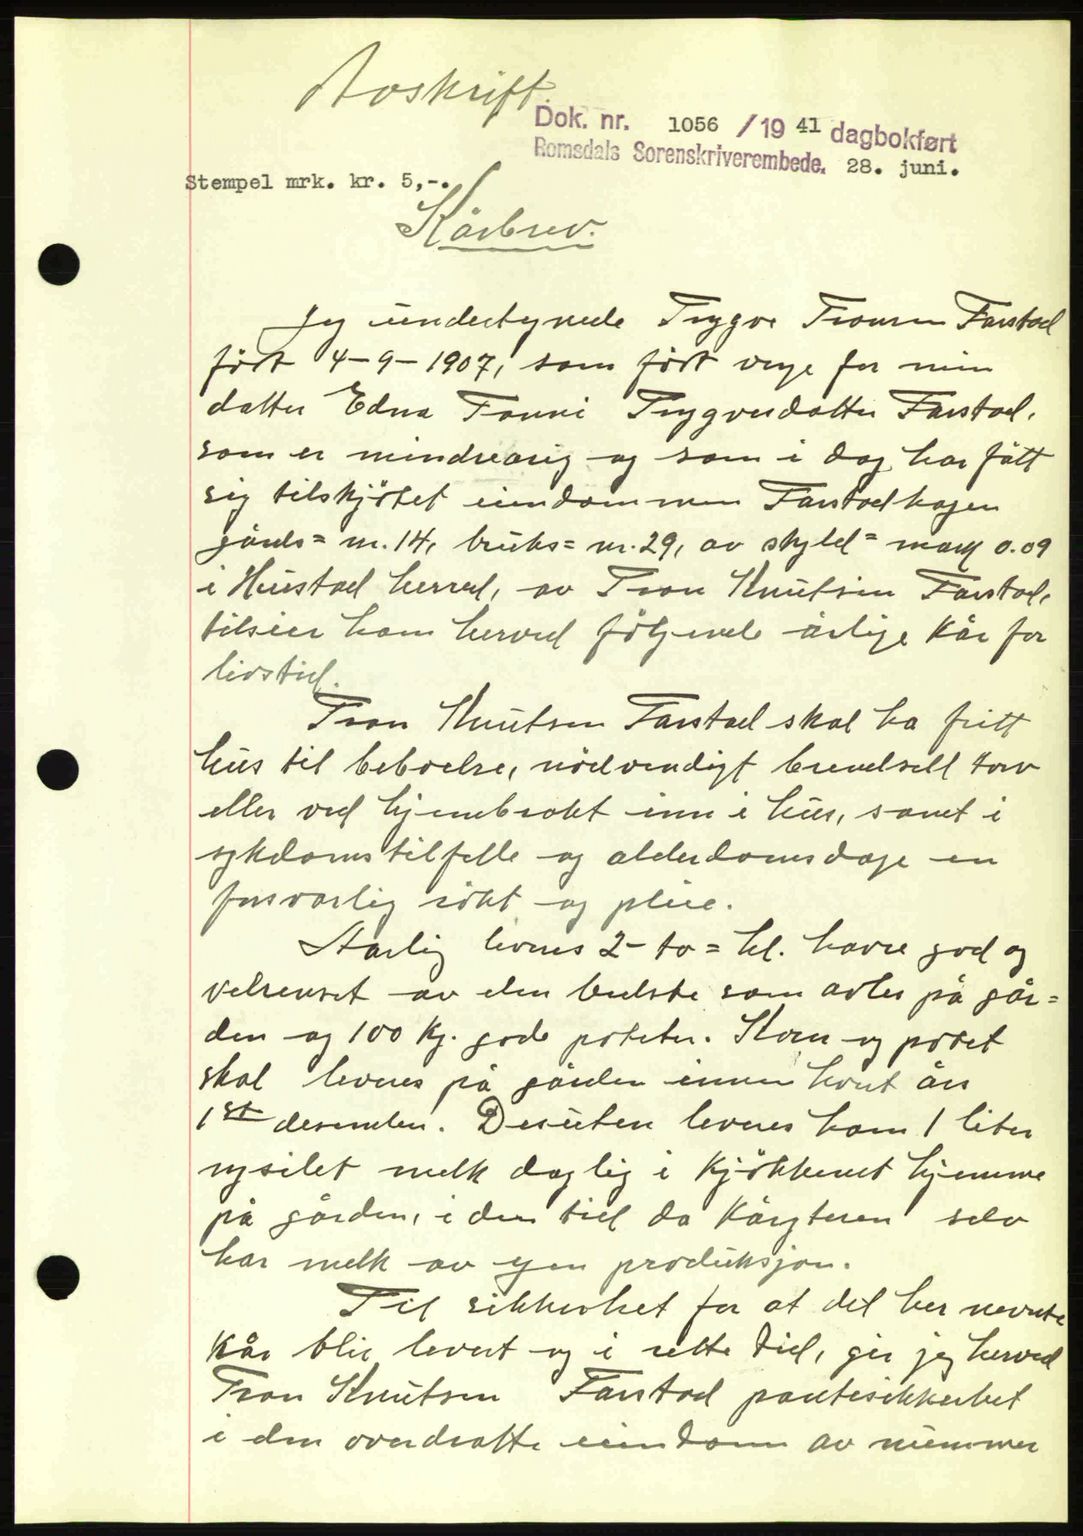 Avskrift.
Dok. nr. 1056 / 19 41 dagbokført
Romsdals Sorenskriverembede. 28. juni.
Stempel mrk. kr. 5,-.
Kårbrev.
Jeg undertegnede Trygve Tronsen Farstad
født 4-9-1907, som født verge for min
datter Edna Fanni Trygvesdatter Farstad,
som er mindreårig og som i dag har fått
sig tilskjøtet eiendommen Farstadhagen
gårds= nr. 14, bruks= nr. 29, av skyld= mark 0.09
i Hustad herred, av Tron Knutsen Farstad,
tilsier ham herved følgende årlige kår for
livstid.
Tron Knutsen Farstad skal ha fritt
hus til beboelse, nødvendigt brendsell torv
eller ved hjembrakt inn i hus, samt i
sykdomstilfelle og alderdomsdage en
forsvarlig røkt og pleie.
Årlig leveres 2- to= hl. havre god og
velrenset av den bedste som avles på går=
den og 100 kg. gode poteter. Korn og potet
skal leveres på gården innen hvert års
1st desember. Desuten leveres ham 1 liter
nysilet melk daglig i kjøkkenet hjemme
på gården, i den tid da kåryteren selv
har melk av egen produksjon.
Til sikkerhet for at det her nevnte
kår blir levert og i rette tid, gir jeg herved
Tron Knutsen Farstad pantesikkerhet
i den overdratte eiendom av nummer